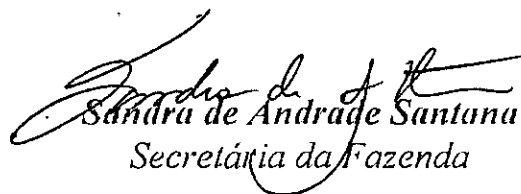 Sandra de Andrade Santana
Secretária da Fazenda